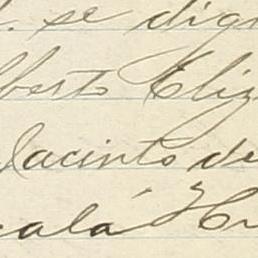 . se dign
lberto Eliz
Jacinto de
calá Hu